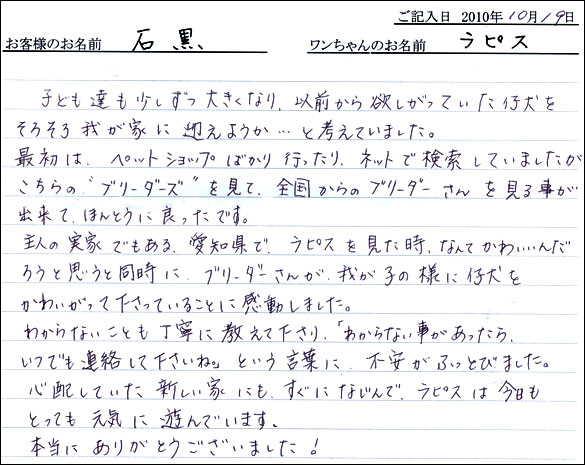 ご記入日 2010年10月19日
お客様のお名前 石黒 ワンちゃんのお名前 ラピス
子ども達も少しずつ大きくなり、以前から欲しがっていた仔犬を
そろそろ我が家に迎えようか…と考えていました。
最初は、ペットショップばかり行ったり、ネットで検索していましたが
こちらの"ブリーダーズ"を見て、全国からのブリーダーさんを見る事が
出来て、ほんとうに良ったです。
主人の実家でもある、愛知県で、ラピスを見た時、なんてかわいいんだ
ろうと思うと同時に、ブリーダーさんが、我が子の様に仔犬を
かわいがって下さっていることに感動しました。
わからないことも丁寧に教えて下さり、「わからない事があったら、
いつでも連絡して下さいね。」という言葉に、不安がふっとびました。
心配していた新しい家にも、すぐになじんで、ラピスは今日も
とっても元気に遊んでいます。
本当にありがとうございました!